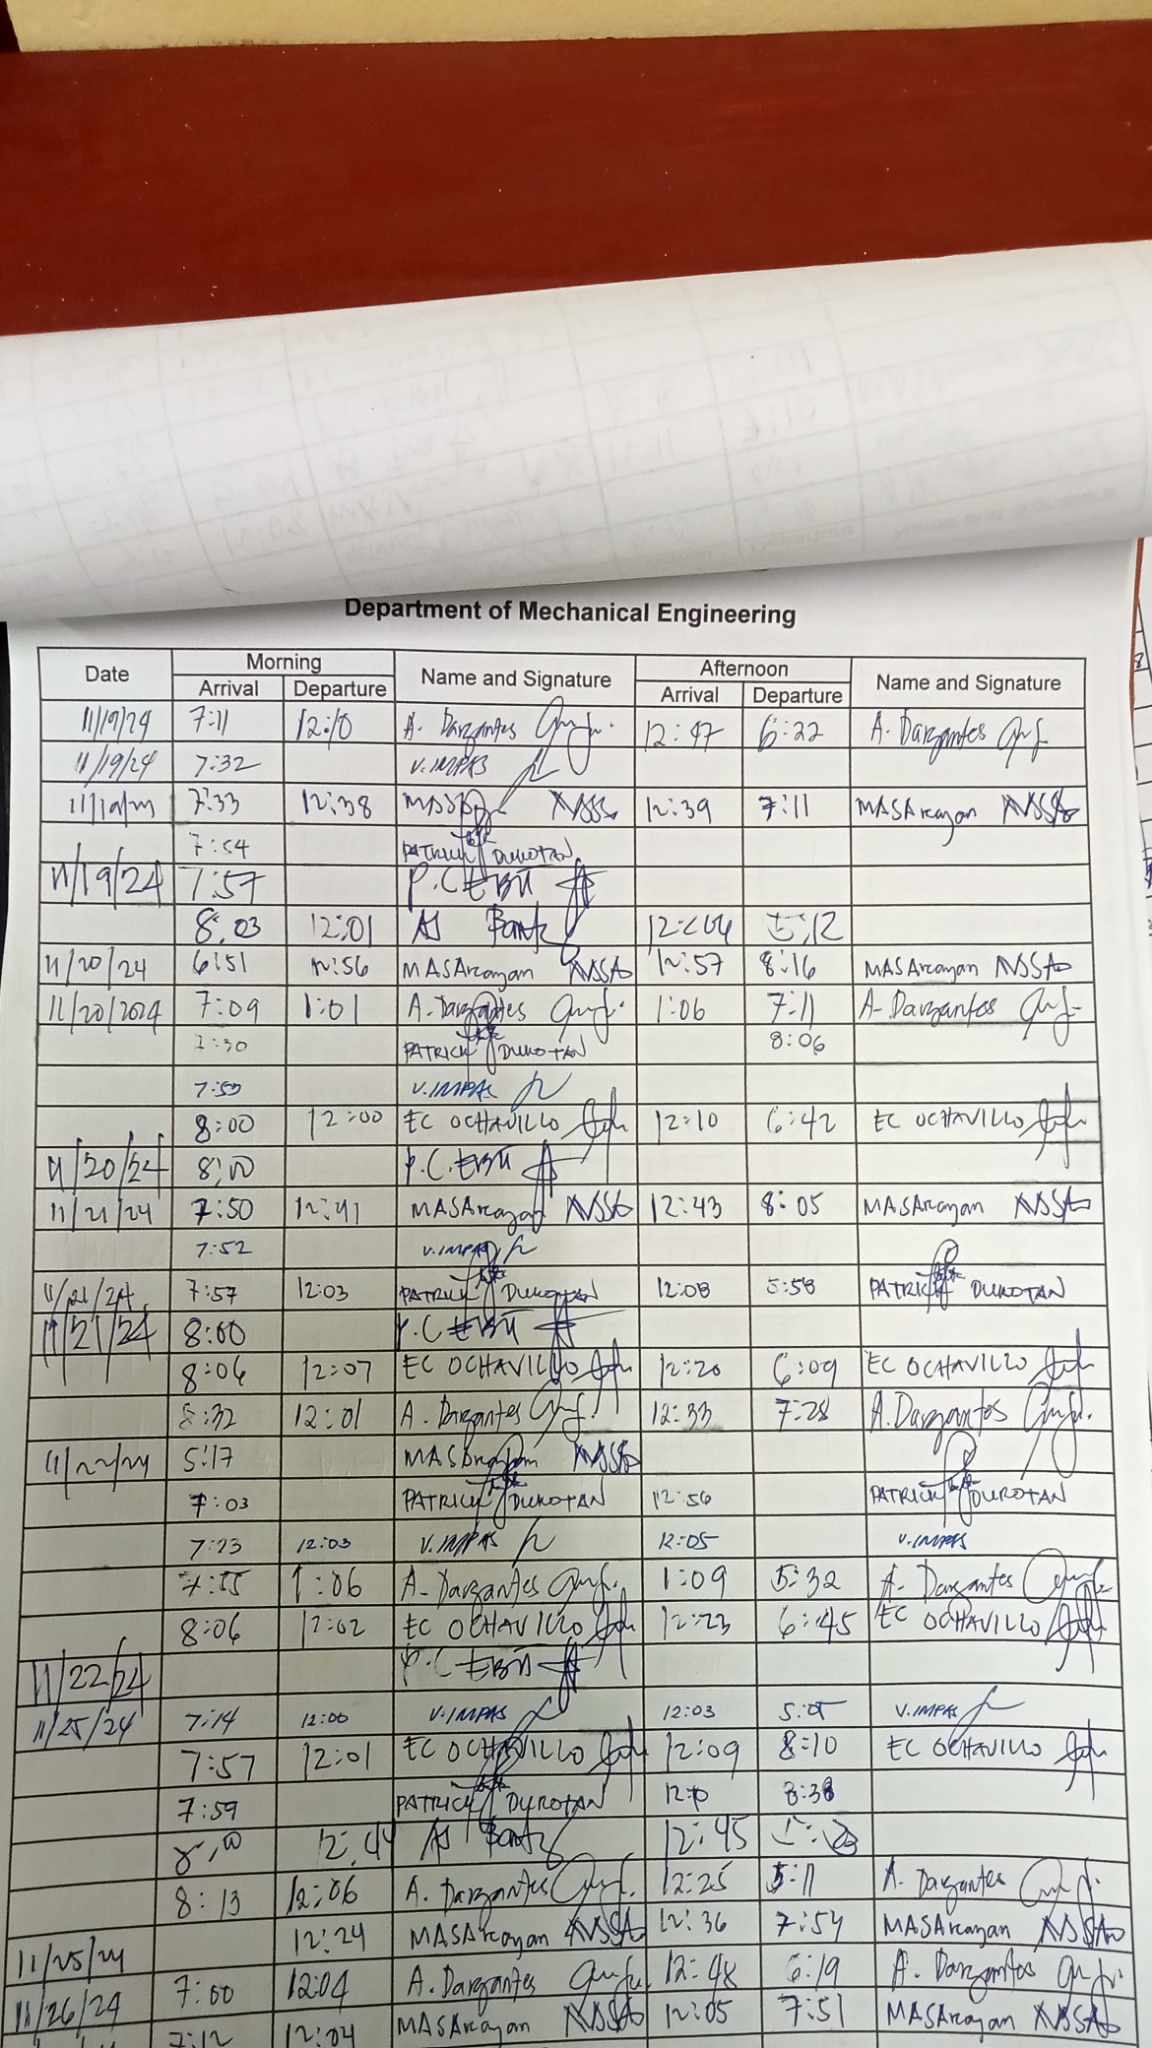 Department of Mechanical Engineering
Date Morning Name and Signature Afternoon Name and Signature
Arrival Departure Arrival Departure
11/19/24 7:11 12:10 A. Dargantes 12:47 6:22 A. Dargantes
11/19/24 7:32 V. IMPAS
7:33 12:38 12:39 7:11 MASArcayan
7:54 PATRICK DUROTAN
11/19/24 7:57 P.C EBU
8:03 12:01 5:12
11/20/24 6:51 12:56 MASArcayan 12:57 8:16 MASArcayan
11/20/2024 7:09 1:01 A. Dargantes 1:06 7:11 A. Dargantes
7:30 PATRICK DUROTAN 8:06
V. IMPAS
8:00 12:00 EC OCHAVILLO 12:10 6:42 EC OCHAVILLO
11/20/24 8:00 P.C. EBU
11/21/24 7:50 12:41 MASArcayan 12:43 8:05 MASArcayan
7:52 V. IMPAS
11/21/24 7:57 12:03 PATRICK DUROTAN 12:08 5:58 PATRICK DUROTAN
11/21/24 8:00 P.C EBU
8:06 12:07 EC OCHAVILLO 12:20 6:09 EC OCHAVILLO
8:32 12:01 A. Dargantes 12:33 7:28 A. Dargantes
11/22/24 5:17 MASArcayan
7:03 PATRICK DUROTAN 12:56 PATRICK DUROTAN
7:23 12:03 V. IMPAS 12:05 V. IMPAS
7:55 1:06 A. Dargantes 1:09 5:32 A. Dargantes
8:06 12:02 EC OCHAVILLO 12:23 6:45 EC OCHAVILLO
11/22/24 P.C EBU
11/25/24 7:14 12:00 V. IMPAS 12:03 V. IMPAS
7:57 12:01 EC OCHAVILLO 12:09 8:10 EC OCHAVILLO
7:59 PATRICK DUROTAN 8:38
12:44 12:45
8:13 12:06 A. Dargantes 12:25 5:11 A. Dargantes
11/25/24 12:24 MASArcayan 12:36 7:54 MASArcayan
11/26/24 7:00 12:04 A. Dargantes 12:48 6:19 A. Dargantes
7:12 12:04 MASArcayan 12:05 7:51 MASArcayan